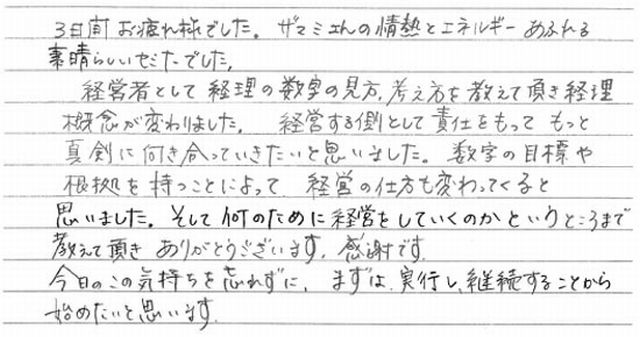 3日間お疲れ様でした。ザマミさんの情熱とエネルギーあふれる
素晴らしいセミナーでした。
経営者として経理の数字の見方、考え方を教えて頂き経理
概念が変わりました。経営する側として責任をもってもっと
真剣に向き合っていきたいと思いました。数字の目標や
根拠を持つことによって、経営の仕方も変わってくると
思いました。そして何のために経営をしていくのかというところまで
教えて頂きありがとうございます。感謝です。
今日のこの気持ちを忘れずに、まずは、実行し、継続することから
始めたいと思います。